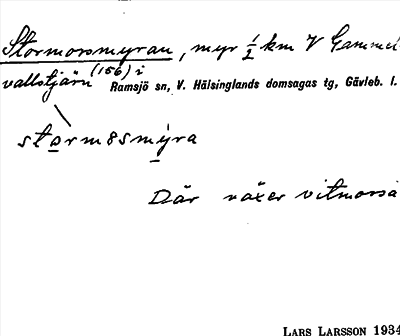 Stormorsmyran, myr ½ km V Gammel-
vallstjärn (156) i
Ramsjö sn, V. Hälsinglands domsagas tg, Gävleb. l.
stormosmyra
Där växer vitmorsa
LARS LARSSON 1934